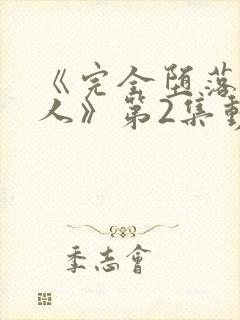 《完全堕落
人》第2集動
季志會